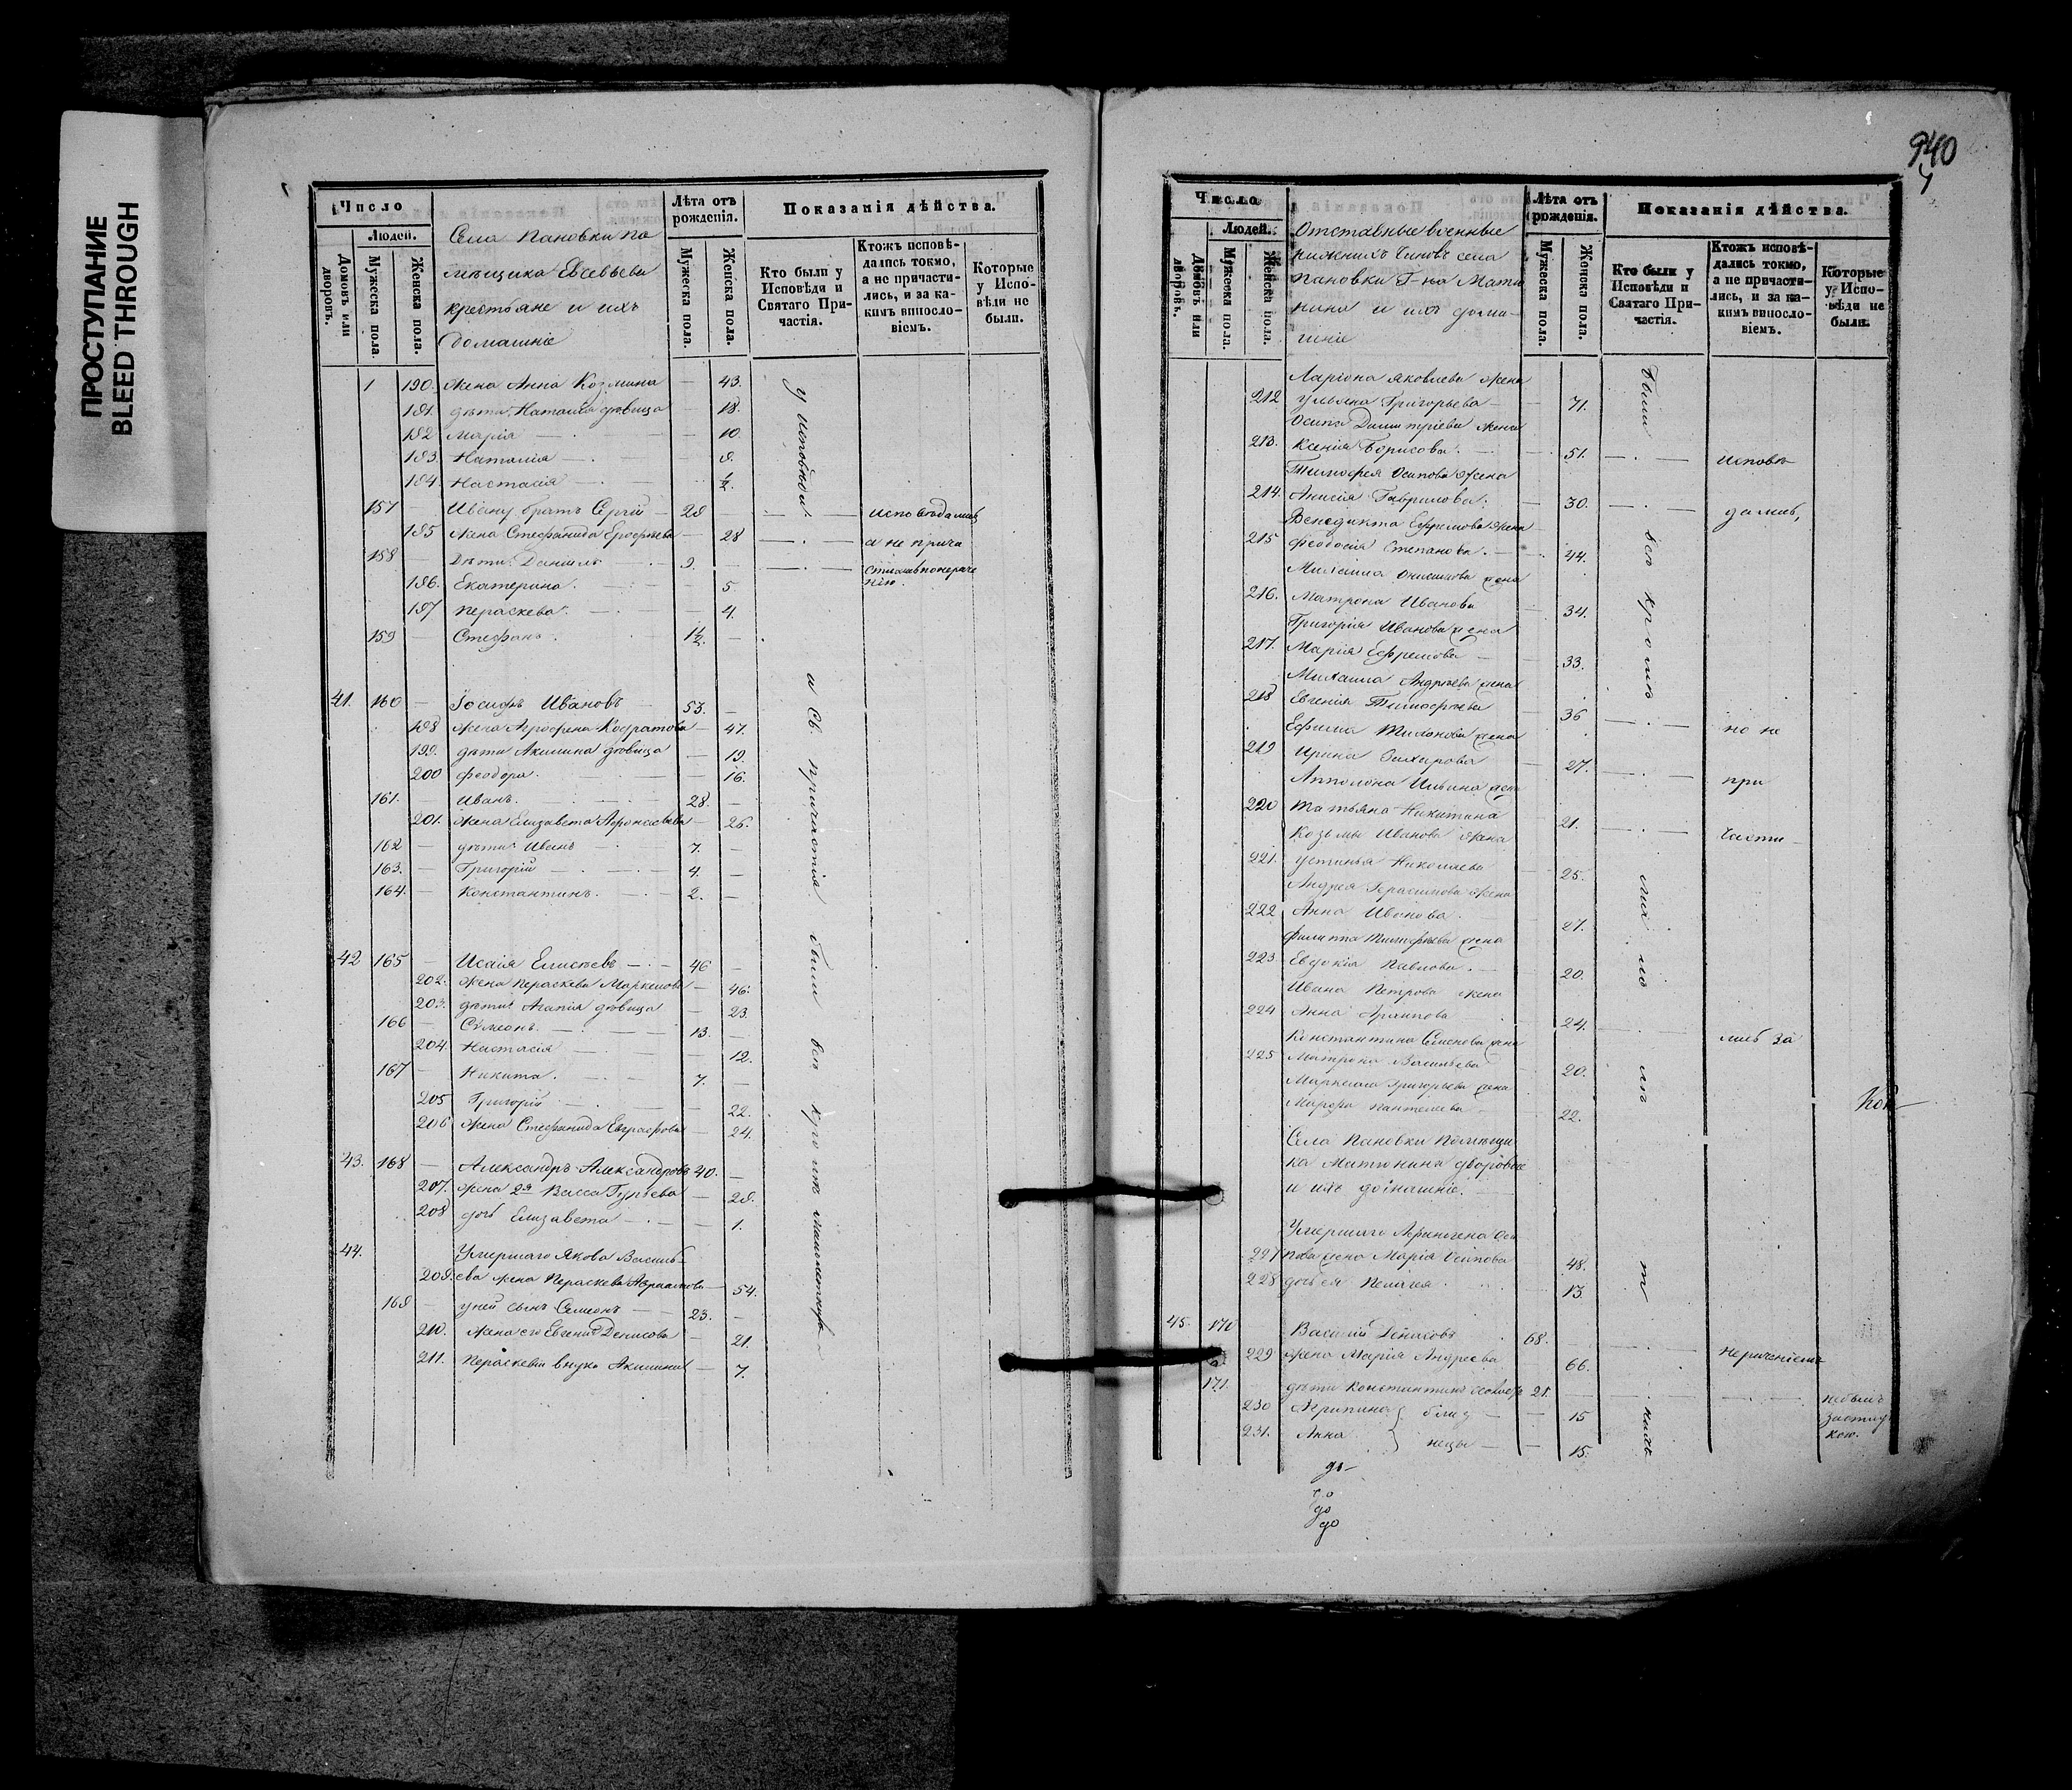 ПРОСТУПАНИЕ
BLEED THROUGH
Число
Людей.
Домовъ или дворовъ.
Мужеска пола.
Женска пола.
Села Пановки по
мѣщика Евсевьева
крестьяне и ихъ
домашніе
Лѣта отъ рожденія.
Мужеска пола.
Женска пола.
Показанія дѣйства.
Кто были у Исповѣди и Святаго Причастія.
Ктожъ исповѣдались токмо, а не причастились, и за какимъ винословіемъ.
Которые у Исповѣди не были.
1 190. жена Анна Козмина — 43.
191. дѣти: Наталія дѣвица — 18.
192 Марія — 10.
193. Наталія — 8.
194. Настасія — ½.
157 — Ивану братъ Сергій — 28 — исповѣдались
195 жена Стефанида Ерофѣева — 28 — а не прича
158 Дѣти: Даніилъ 9. — стились по нераче
196. Екатерина. 5 нію.
197 Пераскева. — 4.
159 — Стефанъ. 1½. —
41. 160 — Іосифъ Ивановъ — 53. —
198 жена Агрофена Кодратова — 47.
199. дѣти Акилина дѣвица — 19.
200 Феодора. — 16.
161. Иванъ. 28. —
201. жена Елизавета Афонасьева — 26.
162 — дѣти: Иванъ — 7. —
163. — Григорій — 4. —
164. — Константинъ. — 2. —
42 165 — Исаія Елисѣевъ — 46 —
202. жена Пераскева Маркелова — 46.
203. дѣти: Агапія дѣвица — 23.
166 — Сѵмеонъ. — 13. —
204. Настасія — 12.
167 — Никита. — 7. —
205 Григорій — 22.
206 жена Стефанида Евграфова — 24.
43. 168 — Александръ Александровъ 40. —
207. жена 2я Васса Гурьева — 28.
208 дочь Елизавета — 1.
44. Умершаго Якова Василь-
209. ева жена Пераскева — 54.
169 — у ней сынъ Симеонъ — 23. —
210. жена его Евгенія Денисова — 21.
211. Пераскевіи внука Акилина — 7.
у исповѣди
и Св. причастія были всѣ кромѣ малолѣтнихъ
940
Число
Людей.
Домовъ или дворовъ.
Мужеска пола.
Женска пола.
Отставные военные
нижнихъ Чиновъ села
Пановки Г-на Матю
нина и ихъ дома-
шніе
Лѣта отъ рожденія.
Мужеска пола.
Женска пола.
Показанія дѣйства.
Кто были у Исповѣди и Святаго Причастія.
Ктожъ исповѣдались токмо, а не причастились, и за какимъ винословіемъ.
Которые у Исповѣди не были.
Ларіона Яковлева жена
212 Ульяна Григорьева — 71.
Осипа Дмитріева жена
213. Ксенія Борисова. — 51. — исповѣ
Тимофея Осипова жена
214. Анисія Гаврилова. — 30. — дались,
Венедикта Ефремова жена
215 Феодосія Степанова. — 44.
Михаила жена
216. Матрона Иванова 34.
Григорія Иванова жена
217. Марія Ефремова — 33.
Михаила Андреева жена
218 Евгенія Тимофѣева 36 — но не
Ефима Тихонова жена
219 Ирина Захарова 27. — при
Апполона Ильина жена
220 Татьяна Никитина 21. — части
Козьмы Иванова жена
221. Устинья Николаева 25.
Андрея Герасимова жена
222 Анна Иванова. 27.
Филиппа Тимофѣева жена
223 Евдокія Павлова. — 20.
Ивана Петрова жена
224 Анна 24. —
Константина Семенова жена лись за
225 Матрона Васильева 20.
Маркела Григорьева жена
Марфа Пантелеева — 22.
Села Пановки Помѣщи
ка Матюнина дворовые
и ихъ домашніе. —
Умершаго Оси
227 пова жена Марія Осипова 48.
228 дочь ея Пелагея. 13.
45. 170 Василій Денисовъ 68.
229 жена Марія Андреева 66. — нераченіемъ
171. дѣти Константинъ 21.
230 Агрипина } близ — 15
231. Анна } нецы — 15.
Были всѣ кромѣ
небылъ
до-
до
до
до